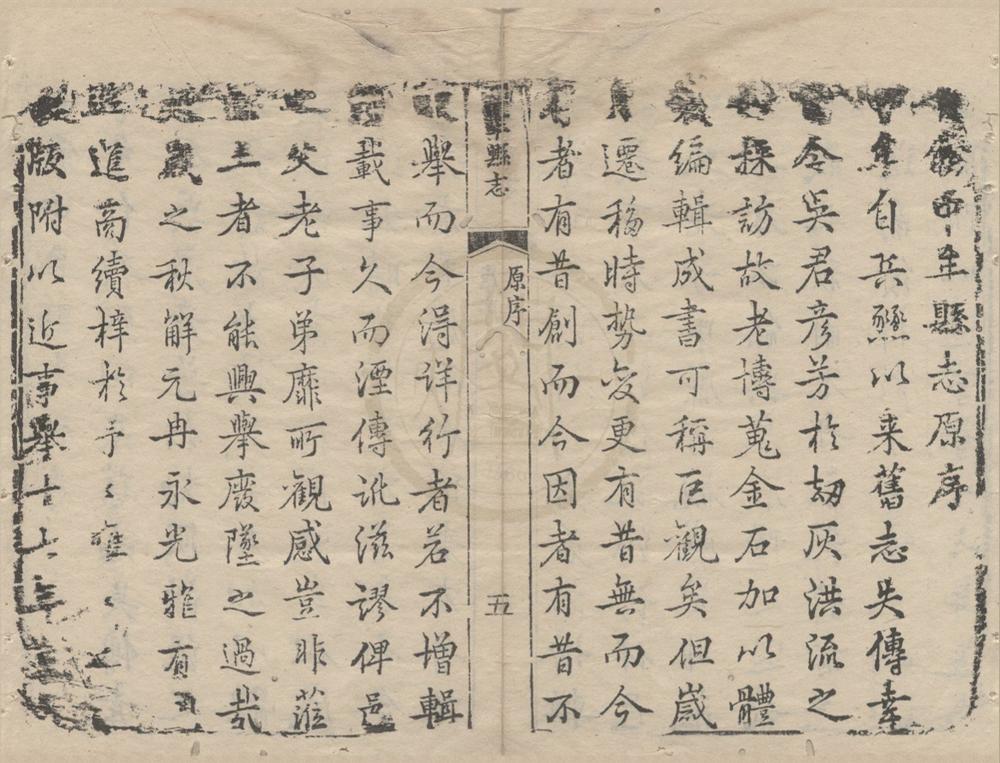 中牟縣志原序
自兵燹以来舊志失傳幸
令吳君彦芳於劫灰洪流之
採訪故老博蒐金石加以體
編輯成書可稱巨觀矣但歲
遷移時势变更有昔無而今
者有昔創而今因者有昔不
縣志
原序
五
舉而今得详行者若不增輯
載事久而湮傳訛滋謬俾邑
父老子弟靡所觀感豈非蒞
土者不能興舉廢墜之過哉
歲之秋觧元冉永光雅有
進商續梓於予
版附以近事